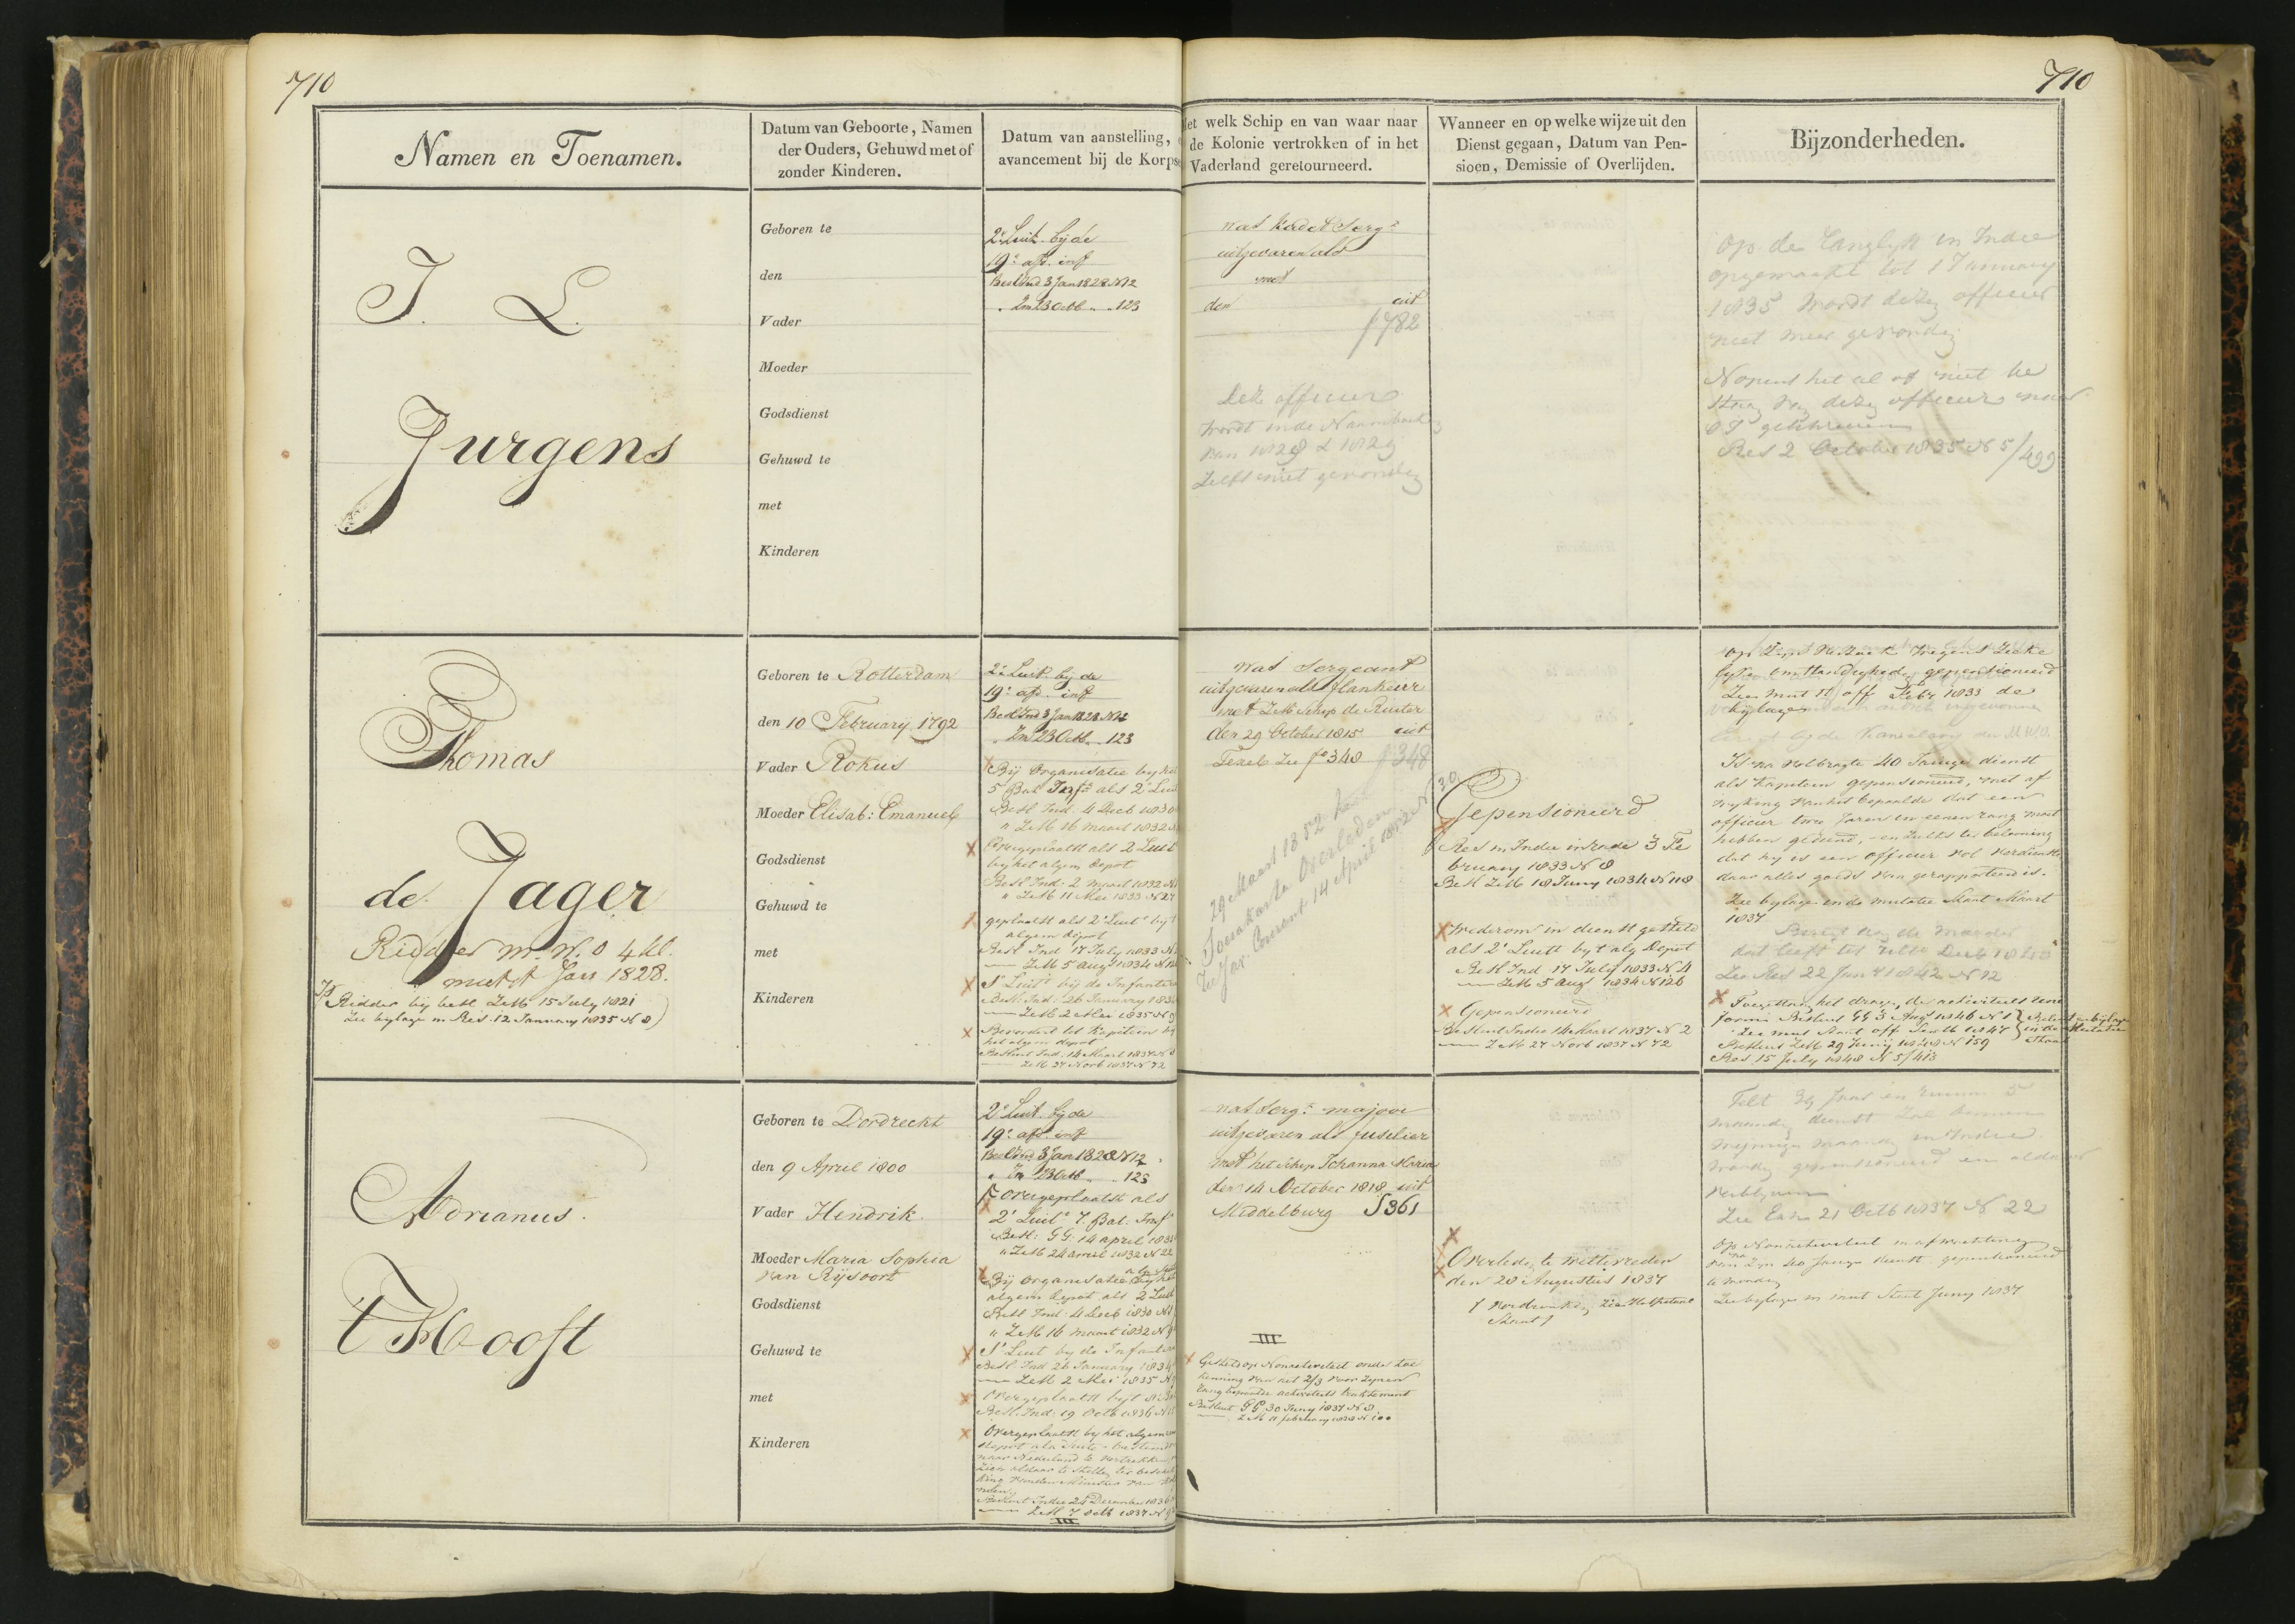 710
710
Namen en Toenamen.
Datum van Geboorte, Namen
der Ouders, Gehuwd met of
zonder Kinderen.
Datum van aanstelling,
avancement bij de Korps
welk Schip en van waar naar
de Kolonie vertrokken of in het
Vaderland geretourneerd.
Wanneer en op welke wijze uit den
Dienst gegaan, Datum van Pen-
sioen, Demissie of Overlijden.
Bijzonderheden.
J. L.
Jurgens
Geboren te
den
Vader
Moeder
Godsdienst
Gehuwd te
met
Kinderen
2e Luit. bij de
19e afd. inf
Besl Ind 3 Jan 1828 N 12
" Zm 23 Octb " " 123
was Kadet Sergt
uitgevaren als
met
den uit
f 782
Deze officier
wordt in de Naamboeken
van 1828 & 1829
zelfs niet gevonden
Op de Ranglyst in Indie
opgemaakt tot 1 January
1835 wordt dezen officier
niet meer gevonden
Nopens het al of niet be
staan van dezen officier naar
OI geschreven
Res 2 October 1835 N 5/499
Thomas
de Jager
Ridder M.W.O 4 kl.
mutst Jan 1828.
Is Ridder bij besl ZM 15 July 1821
Zie bijlage in Res. 12 January 1835 N 8)
Geboren te Rotterdam
den 10 February 1792
Vader Rokus
Moeder Elisab: Emanuels
Godsdienst
Gehuwd te
met
Kinderen
2e Luit. bij de
19e afd. inf
Besl Ind 3 Jan 1828 N 12
" Zm 23 Octb " 123
Bij Organisatie by het
5 Bat Inft als 2e Luit
Besl Ind. 4 Decb 1830
" ZM 16 maart 1832
Overgeplaatst als 2 Luit
by het algem depot
Besl Ind: 2 maart 1832
" ZM 11 Mei 1833 N 27
geplaatst als 2e Luit by t
algem depot
Besl Ind 17 July 1833 N
ZM 5 aug 1834 N 126
1e Luit by de Infanterie
Besl. Ind: 26 January 1834
ZM 2 Mei 1835 N 9
Bevordert tot Kapitein by
het algem depot
Besluit Ind: 14 Maart 1837 N 2
ZM 27 Novb 1837 N 72
was Sergeant
uitgevaren als flankeur
met ZM schip de Ruiter
den 29 October 1815 uit
Texel Zie fo 348 f 348
29 Maart 1852 te
Soerakarta Overleden
Zie Jav. Courant 14 April 1852 N 30
Gepensioneerd
Res in Indie in rade 3 Fe
bruary 1833 N 8
Besl ZM 18 Juny 1834 N 118
wederom in dienst gesteld
als 2e Luit by t alg Depot
Besl Ind 17 July 1833 N 4
ZM 5 Augt 1834 N 126
Gepensioneerd
Besluit Indie 14 Maart 1837 N 2
ZM 27 Novb 1837 N 72
op zyn verzoek wegens zieke
lyke omstandigheden gepensioneerd
Zie mut st off Feby 1833 de
bylagen
Is na volbragte 40 Jarige dienst
als Kapitein gepensioneerd, met af
wyking van het bepaalde dat een
officier twee Jaren in eenen rang moet
hebben gediend, en zulks ter belooning
dat hy is een officier vol verdiensten
daar alles goeds van gerapporteerd is.
Zie bylage in de mutatie Staat Maart
1837
Zie Res 22 Jan 1842 N 12
Toegestaan het dragen der activiteits uni
form Besluit GG 3 Aug 1846 N 1
Zie mut Staat off Septb 1847
Besluit ZM 29 Juny 1848 N 159
Res 15 July 1848 N 5/413
Adrianus
't Hooft
Geboren te Dordrecht
den 9 April 1800
Vader Hendrik.
Moeder Maria Sophia
van Rijsoort
Godsdienst
Gehuwd te
met
Kinderen
2e Luit. bij de
19e afd. inf
Besl Ind 3 Jan 1828 N 12
" Zm 23 Octb " " 123
Overgeplaatst als
2e Luit 7. Bat. Inf
Besl: GG: 14 april 1830
" ZM 24 april 1832 N 22
Bij organisatie by het
algem depot als 2 Luit
Besl Ind: 4 Decb 1830 N 1
" ZM 16 maart 1832 N 9
1e Luit by de Infanterie
Besl. Ind 26 January 1834
ZM 2 Mei 1835 N 9
Overgeplaatst by t 8 Bat
Besl. Ind: 19 Octb 1836 N
Overgeplaatst by het algemeen
depot als Luit bestemd
naar Nederland te vertrekken
Zich aldaar te stellen ter beschik
king van den Minister van Kolo
nien
Besluit Indie 24 December 1836
ZM 7 Octb 1837 N
III
was Sergt majoor
uitgevaren als fuselier
met het schip Johanna Maria
den 14 October 1818 uit
Middelburg f 361
III
Gesteld op Nonactiviteit onder toe
kenning van het 2/3 voor zynen
rang bepaalde activiteits traktement
Besluit GG 30 Juny 1837 N 8
ZM 11 february 1838 N 100
Overleden te Weltevreden
den 28 Augustus 1837
Telt 39 Jaar en ruim 5
maanden dienst Zal binnen
weinige maanden in Indie
worden gepensioneerd en aldaar
verblyven
Zie Exh 21 Octb 1837 N 22
Op Nonactiviteit in afwachting
van zyn 40 Jarige dienst gepensioneerd
te worden
Zie bylage in mut Staat Juny 1837